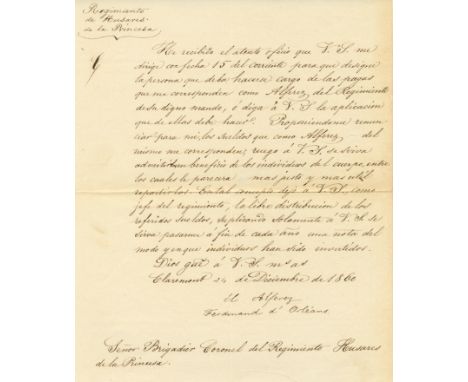 Regimiento
de Husares
de la Princesa
He recibido el atento oficio que V. S. me
dirige con fecha 15 del corriente para que designe
la persona que deba hacerse cargo de las pagas
que me corresponden como Alferez del Regimiento
de su digno mando, ó diga á V. S. la aplicacion
que de ellas debe hacer. Proponiendome renun-
ciar para mi, los sueldos que como Alferez del
mismo me corresponden; ruego á V. S. se sirva
admitirlos en beneficio de los individuos del cuerpo, entre
los cuales le parecera mas justo y mas util
repartirlos. En tal concepto dejo á V. S., como
jefe del regimiento, la libre distribucion de los
referidos sueldos, suplicando solamente á V. S. se
sirva pasarme á fin de cada año una nota del
modo y en que individuos han sido invertidos.
Dios gue á V. S. ms as
Claremont 24 de Diciembre de 1860
El Alferez
Ferdinand d'Orléans
Señor Brigadier Coronel del Regimiento Husares
de la Princesa.